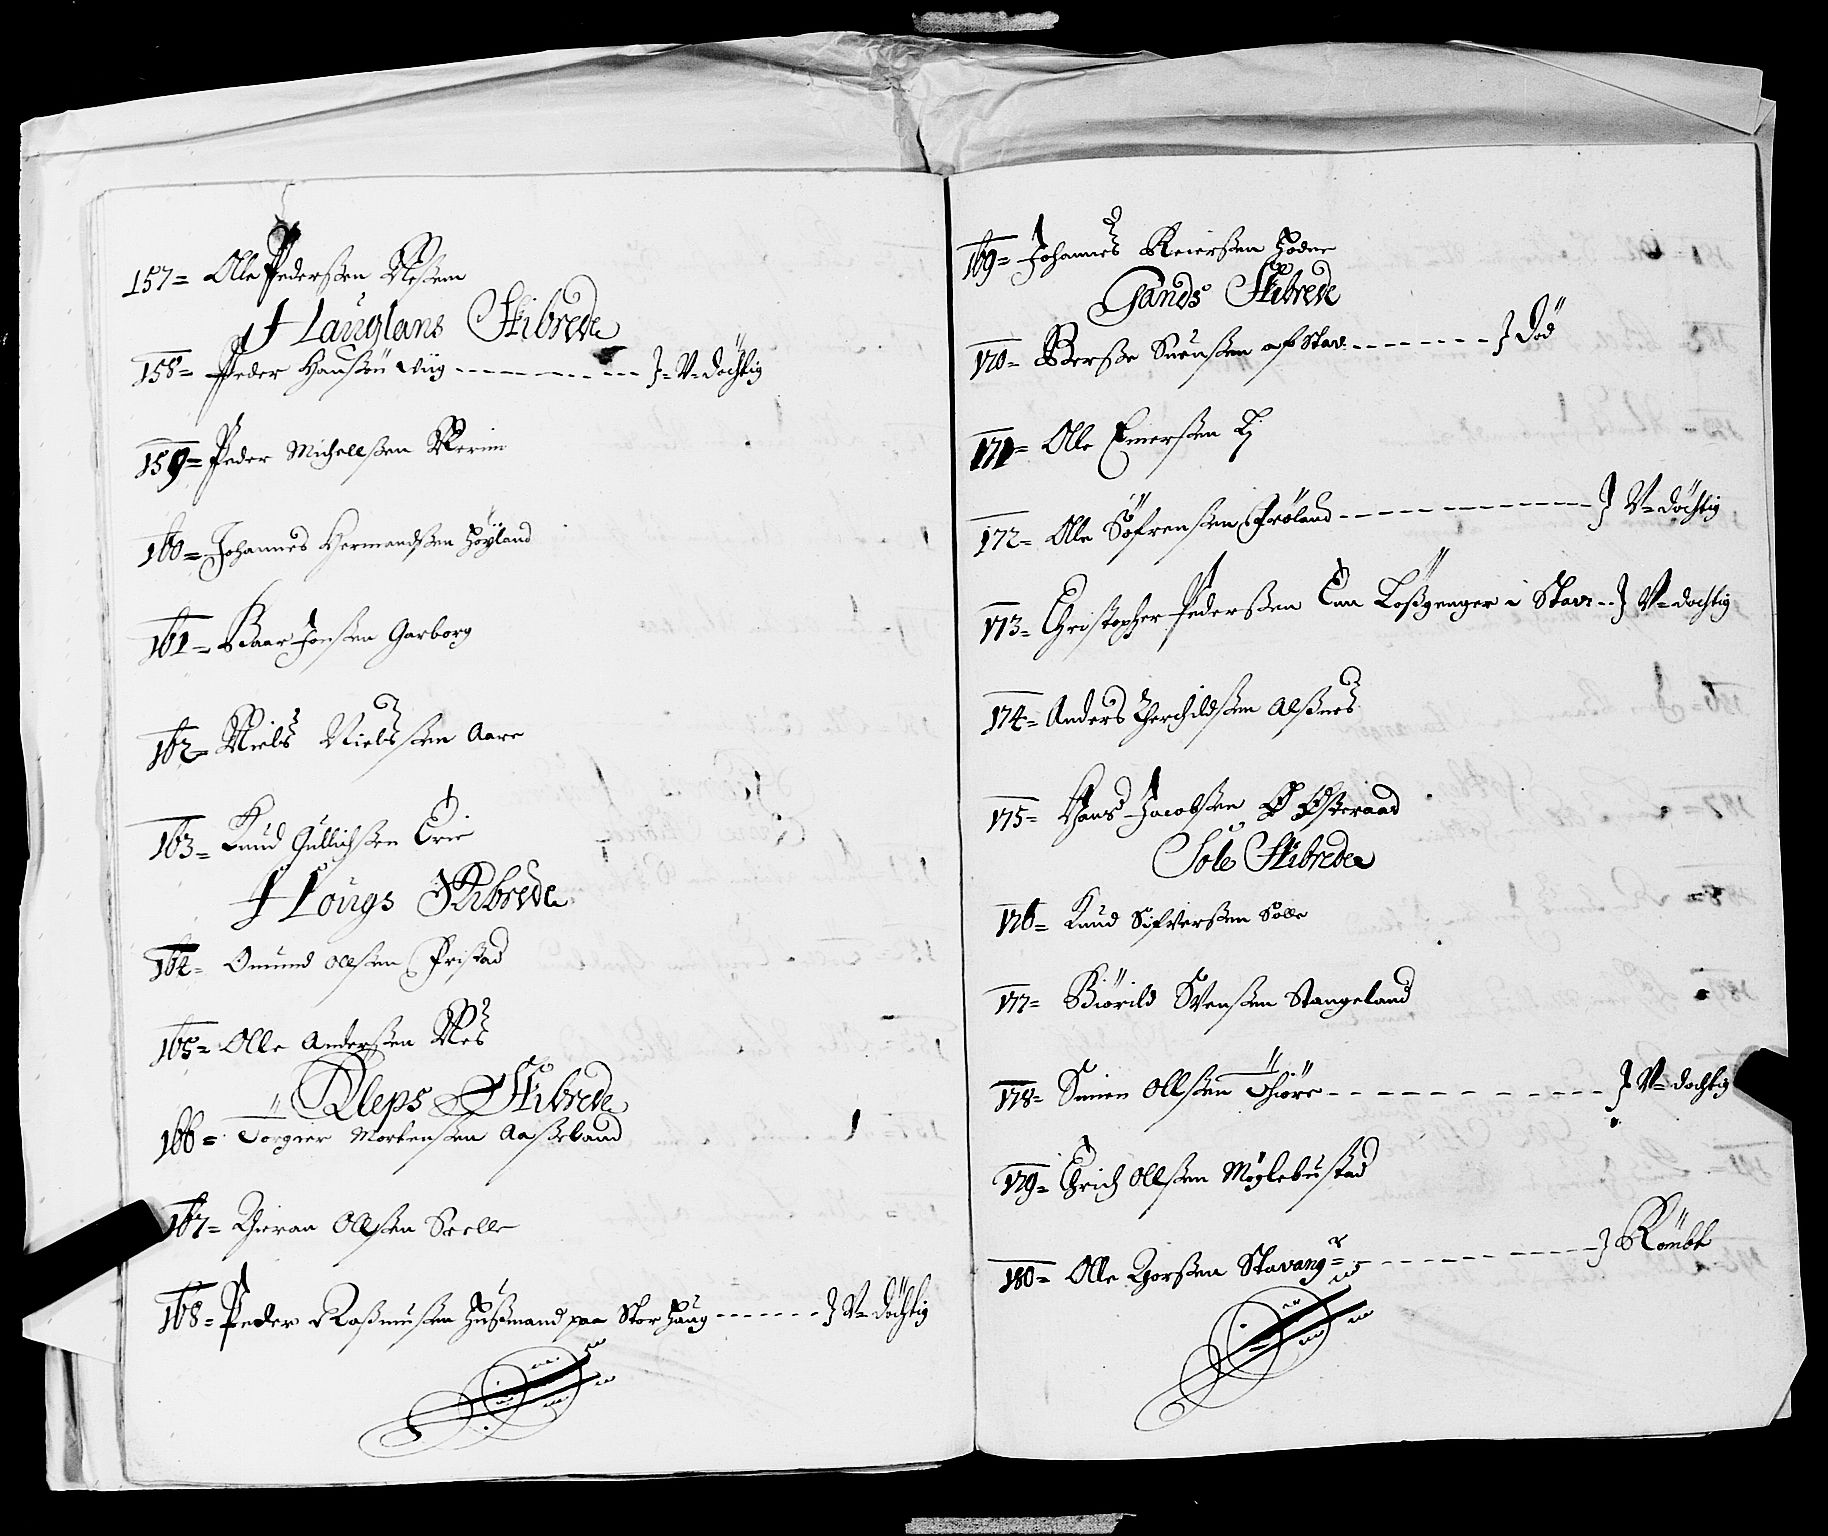 157= Olle Pedersßen Neßem
Hauglans Skibrede
158= Peder Hanßøn Wiig - - - - - - - - - } = V=döchtig
159= Peder Michellßen Rerim
160= Johannes Hermandsßen Höyland
161= Baar Jonßen Garborg
162= Niels Nielsßen Aare
163= Knud Gullichßen Erie
Hougs Skibrede
164= Omund Olsßen Fristad
165= Olle Anderßen Nes
Kleps Skibrede
166= Torgier Mortenßen Aaßeland
167= Thieran Olsßen Seelle
168= Peder Raßmußen Hußmand paa Stor Haug - - - - - - } V=döchtig
169= Johannes Reierßen Hodne
Gands Skibrede
170= Berße Suenßen af Stav - - - - - - - } Död
171= Olle Einerßen
172= Olle Söfrenßen Fröland - - - - - - - - - - - } V=döchtig
173= Christopher Pederßen Een Loßgenger i Stavr - - } V=dochtig
174= Anders Therchildsßen Alßnes
175= Hans Jacobsßen Østeraad
Sole Skibrede
176= Knud Sifverßen Solle
177= Biörild Svenßen Stangeland
178= Simen Olsßen Thiöre - - - - - - - - - - - } V=dochtig
179= Erich Olsßen Möglebustad
180= Olle Thorßen Stavangr= - - - - - - - - - - } Römbt